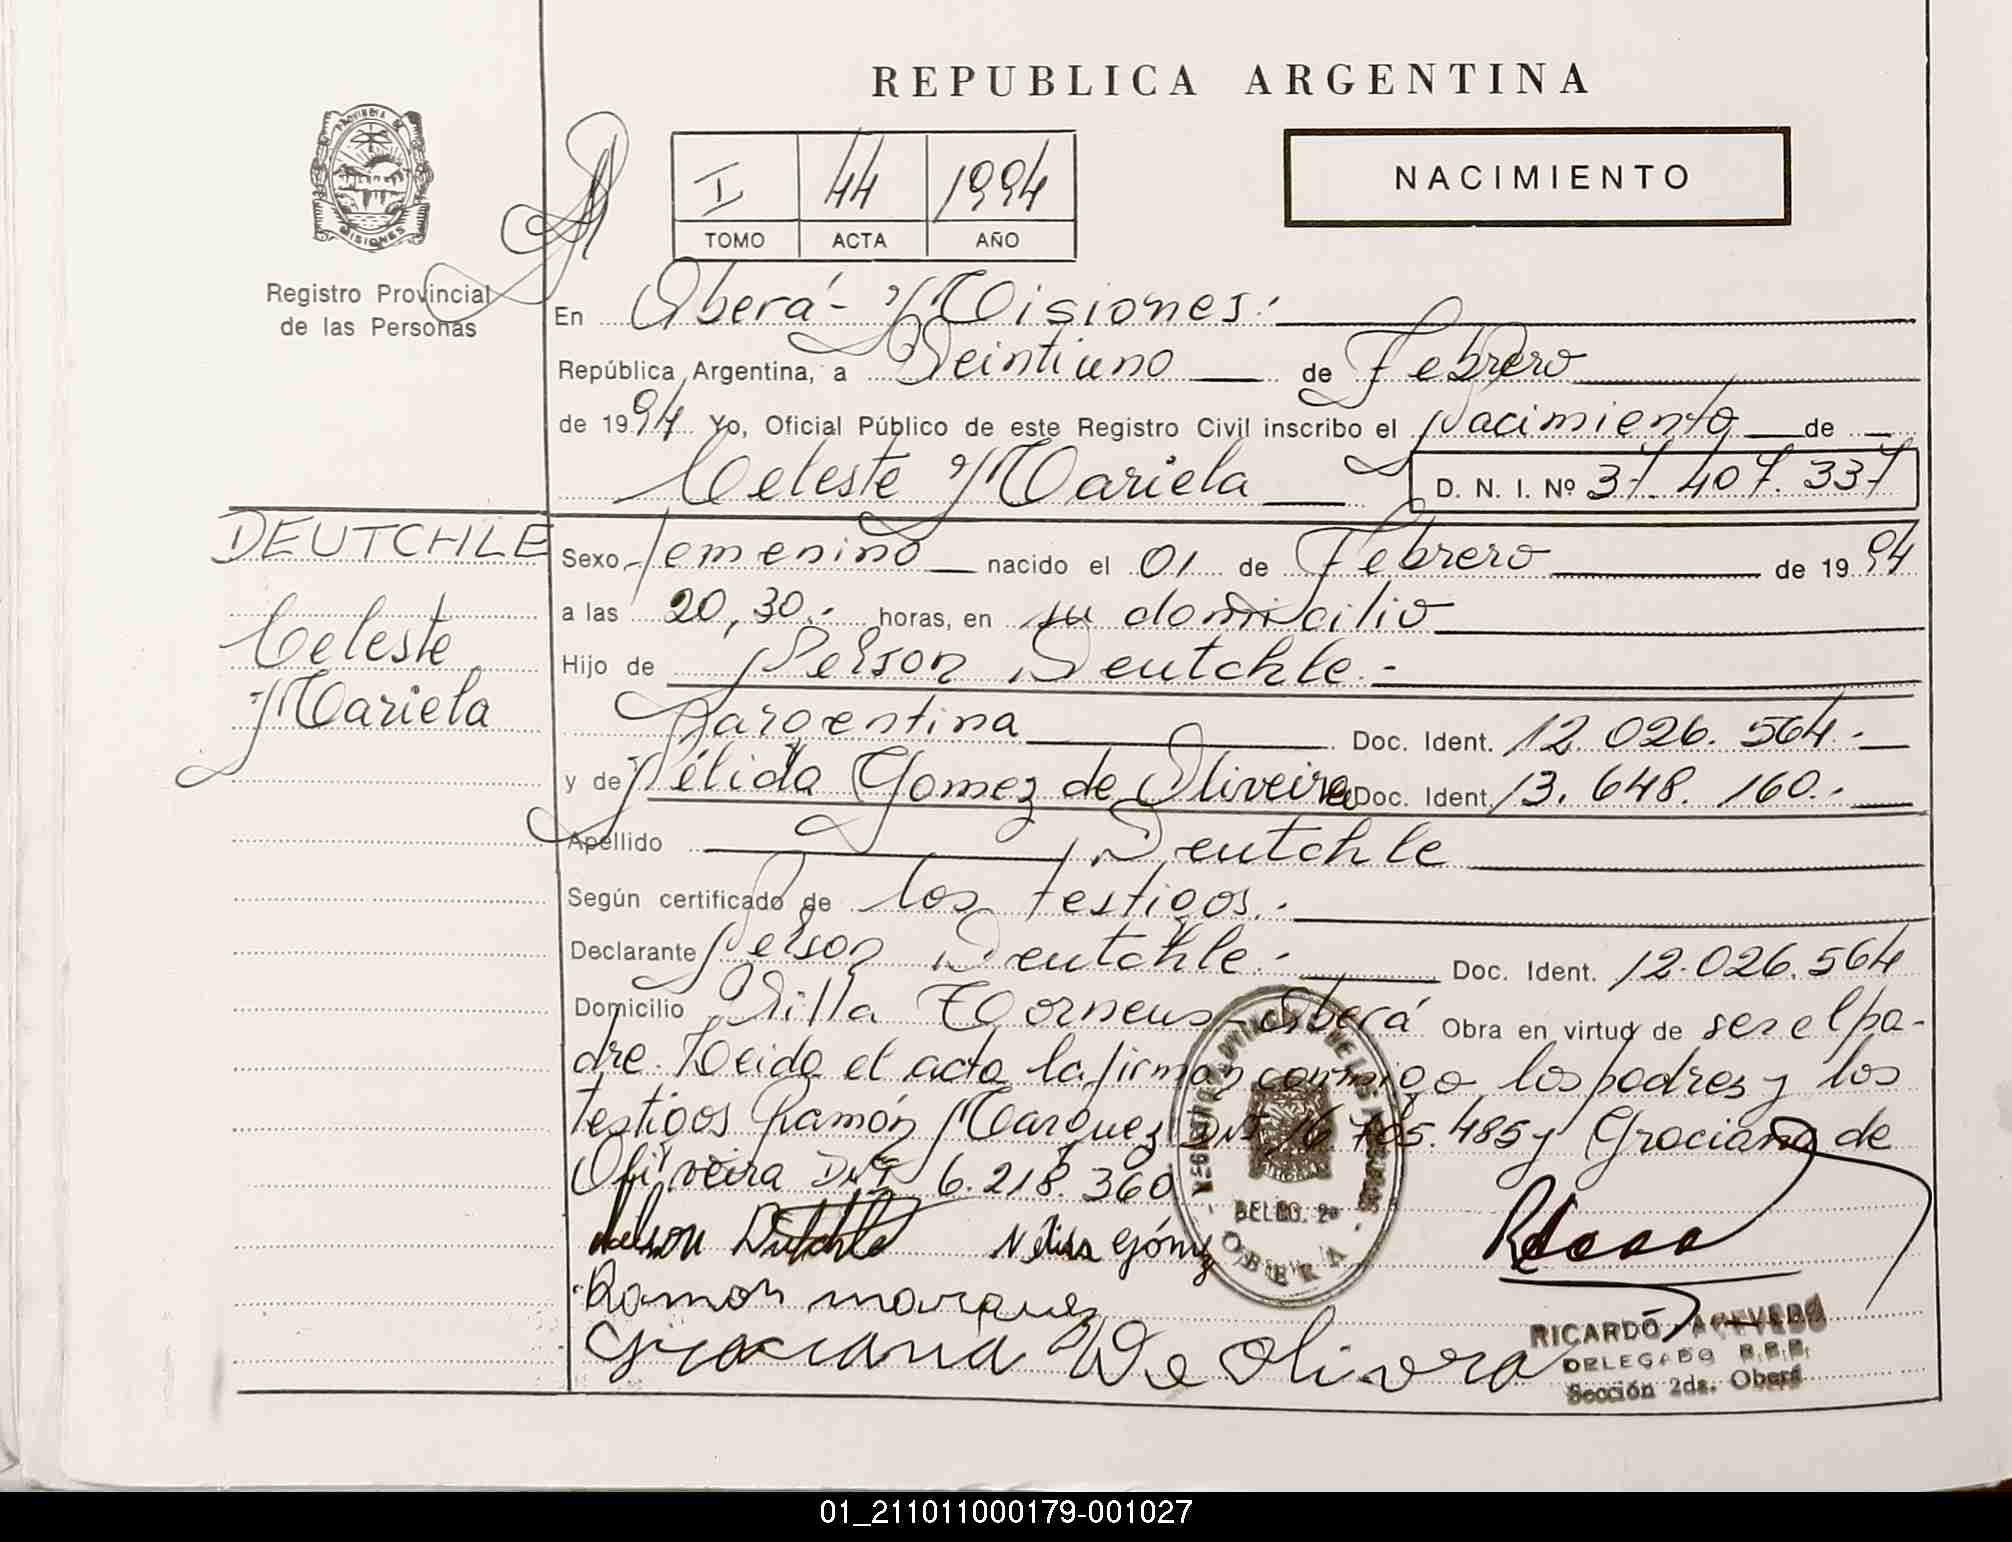 REPUBLICA ARGENTINA
PROVINCIA DE
MISIONES
Registro Provincial
de las Personas
I 44 1994
TOMO ACTA AÑO
NACIMIENTO
En Oberá - Misiones.
República Argentina, a Veintiuno de Febrero
de 1994 Yo, Oficial Público de este Registro Civil inscribo el Nacimiento de
Celeste Mariela D. N. I. Nº 37.407.337
DEUTCHLE
Celeste
Mariela
Sexo femenino nacido el 01 de Febrero de 1994
a las 20,30.- horas, en su domicilio
Hijo de Nelson Deutchle.-
argentina Doc. Ident. 12.026.564.-
y de Nélida Gomez de Oliveira Doc. Ident. 13.648.160.-
Apellido Deutchle
Según certificado de los testigos.-
Declarante Nelson Deutchle.- Doc. Ident. 12.026.564
Domicilio Villa Torneus - Oberá Obra en virtud de ser el pa-
dre. Leida el acta la firman conmigo los padres y los
testigos Ramón Marquez DNI 16.765.485 y Graciana de
Oliveira DNI 6.218.360
Nelson Dutchle Nelida Gómez
Ramon marquez
Graciana De Olivera
DELEG. 2ª
OBERA
RICARDO ACEVEDO
DELEGADO R.P.P.
Sección 2da. Oberá
01_211011000179-001027